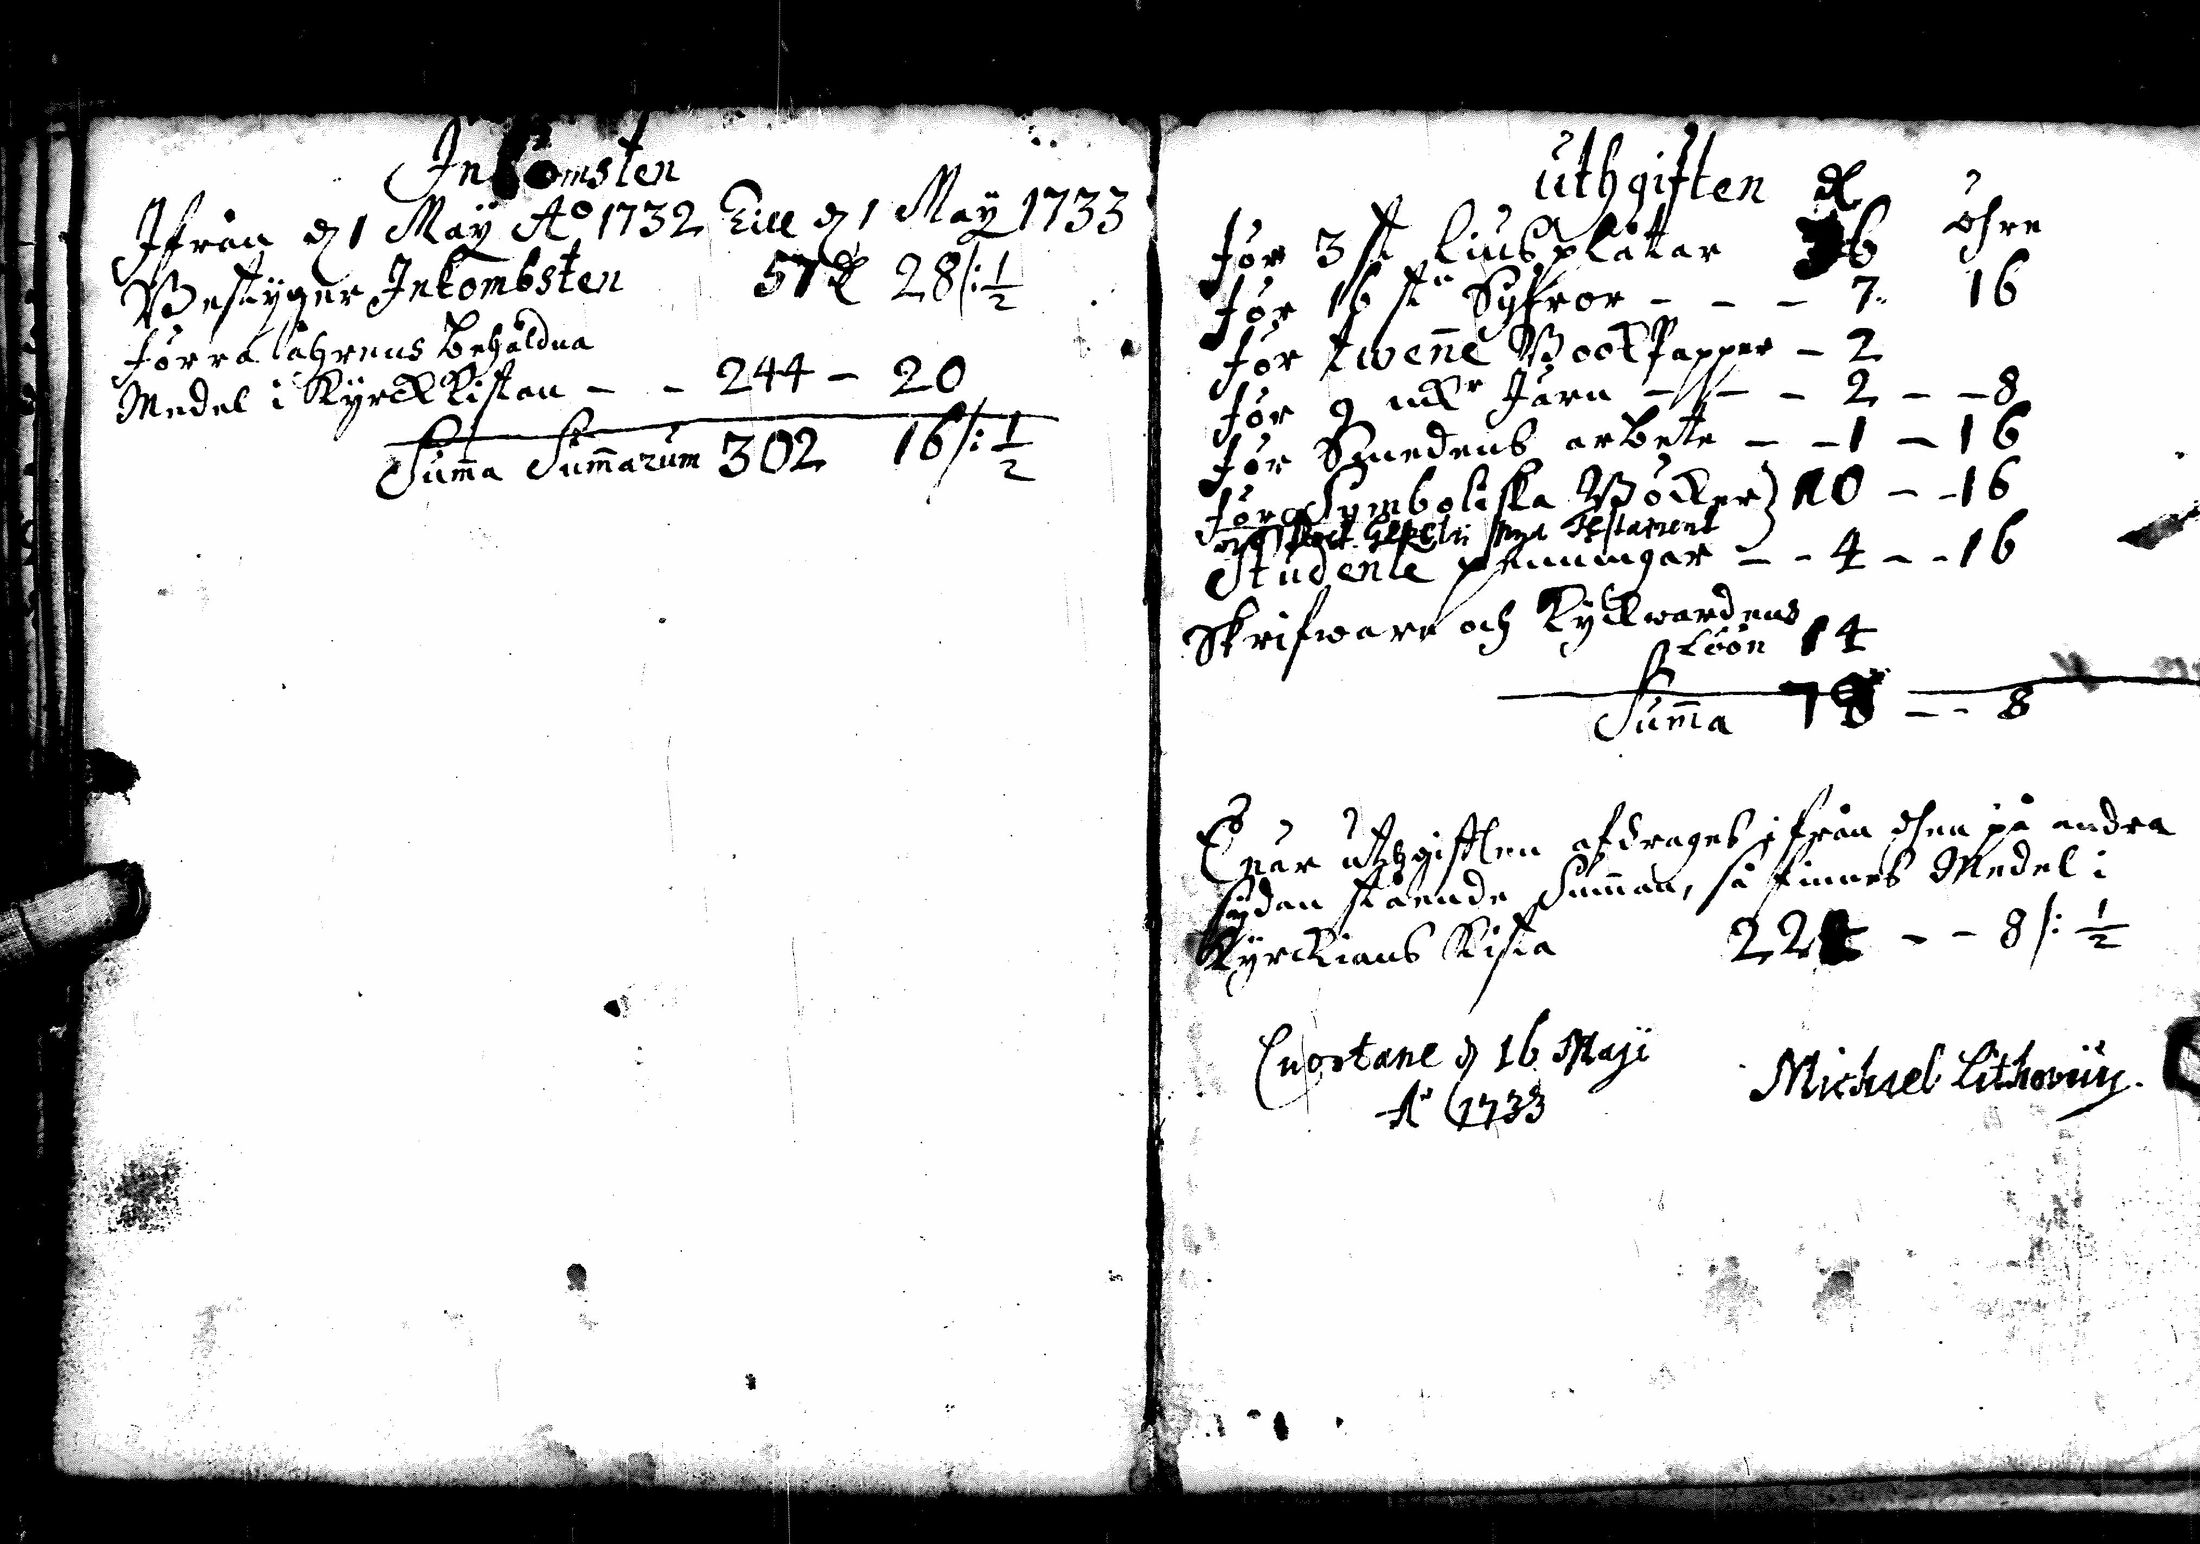 Inkomsten
Ifrån d 1 Maÿ Ao 1732 Till d 1 Maÿ 1733
Bestÿger Inkombsten 57 dl 28 /: 1/2
Förra åhrens Behåldna
Medel i Kÿrckkistan - - 244 - 20
Summa Summarum 302 16 /: 1/2
Uthgiften dl öhre
För 3 st liusplåtar 36
för 16 st - - - 7. 16
för twenne Book Papper - 2
för 9 mkr Järn - - - 2 - - 8
för Smedens arbete - - 1 - 16
för Symboliska Böcker 10 - - 16
och Nya Testament
Studente penningar - - 4 - - 16
Skrifware och Kÿckwardens
Löön 14
Summa 78 - - 8
när uthgiften afdrages ifrån then på andra
sÿdan stående Summan, så finnes Medel i
Kÿrckians Kista 224 - - 8 /: 1/2
Cuortane d 16 Maji
Ao 1733
Michael Lithovius.